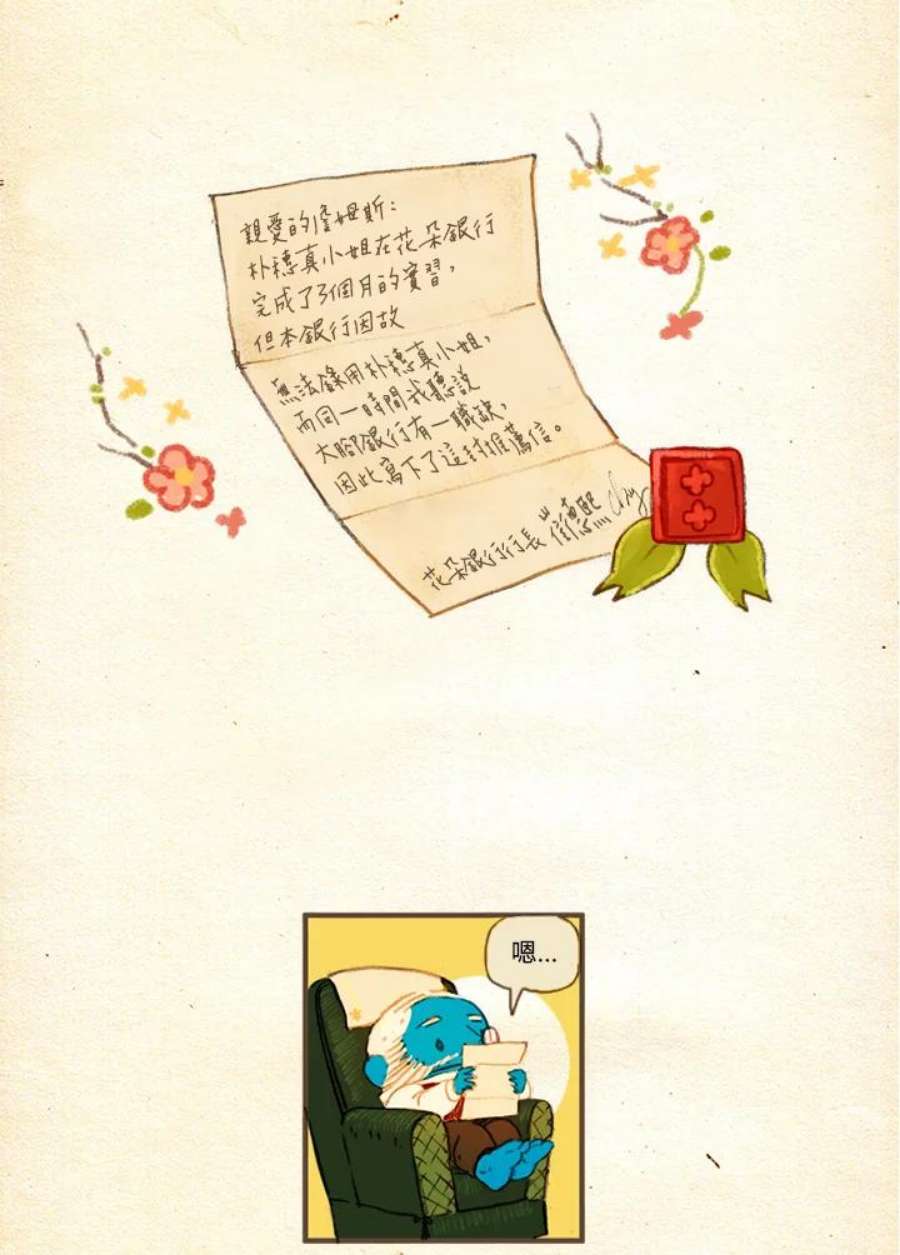 親愛的詹姆斯：
朴穗真小姐在花朵銀行
完成了3個月的實習，
但本銀行因故
無法錄用朴穗真小姐，
而同一時間我聽說
大腳銀行有一職缺，
因此寫下了這封推薦信。
花朵銀行行長 崔惠熙
嗯...